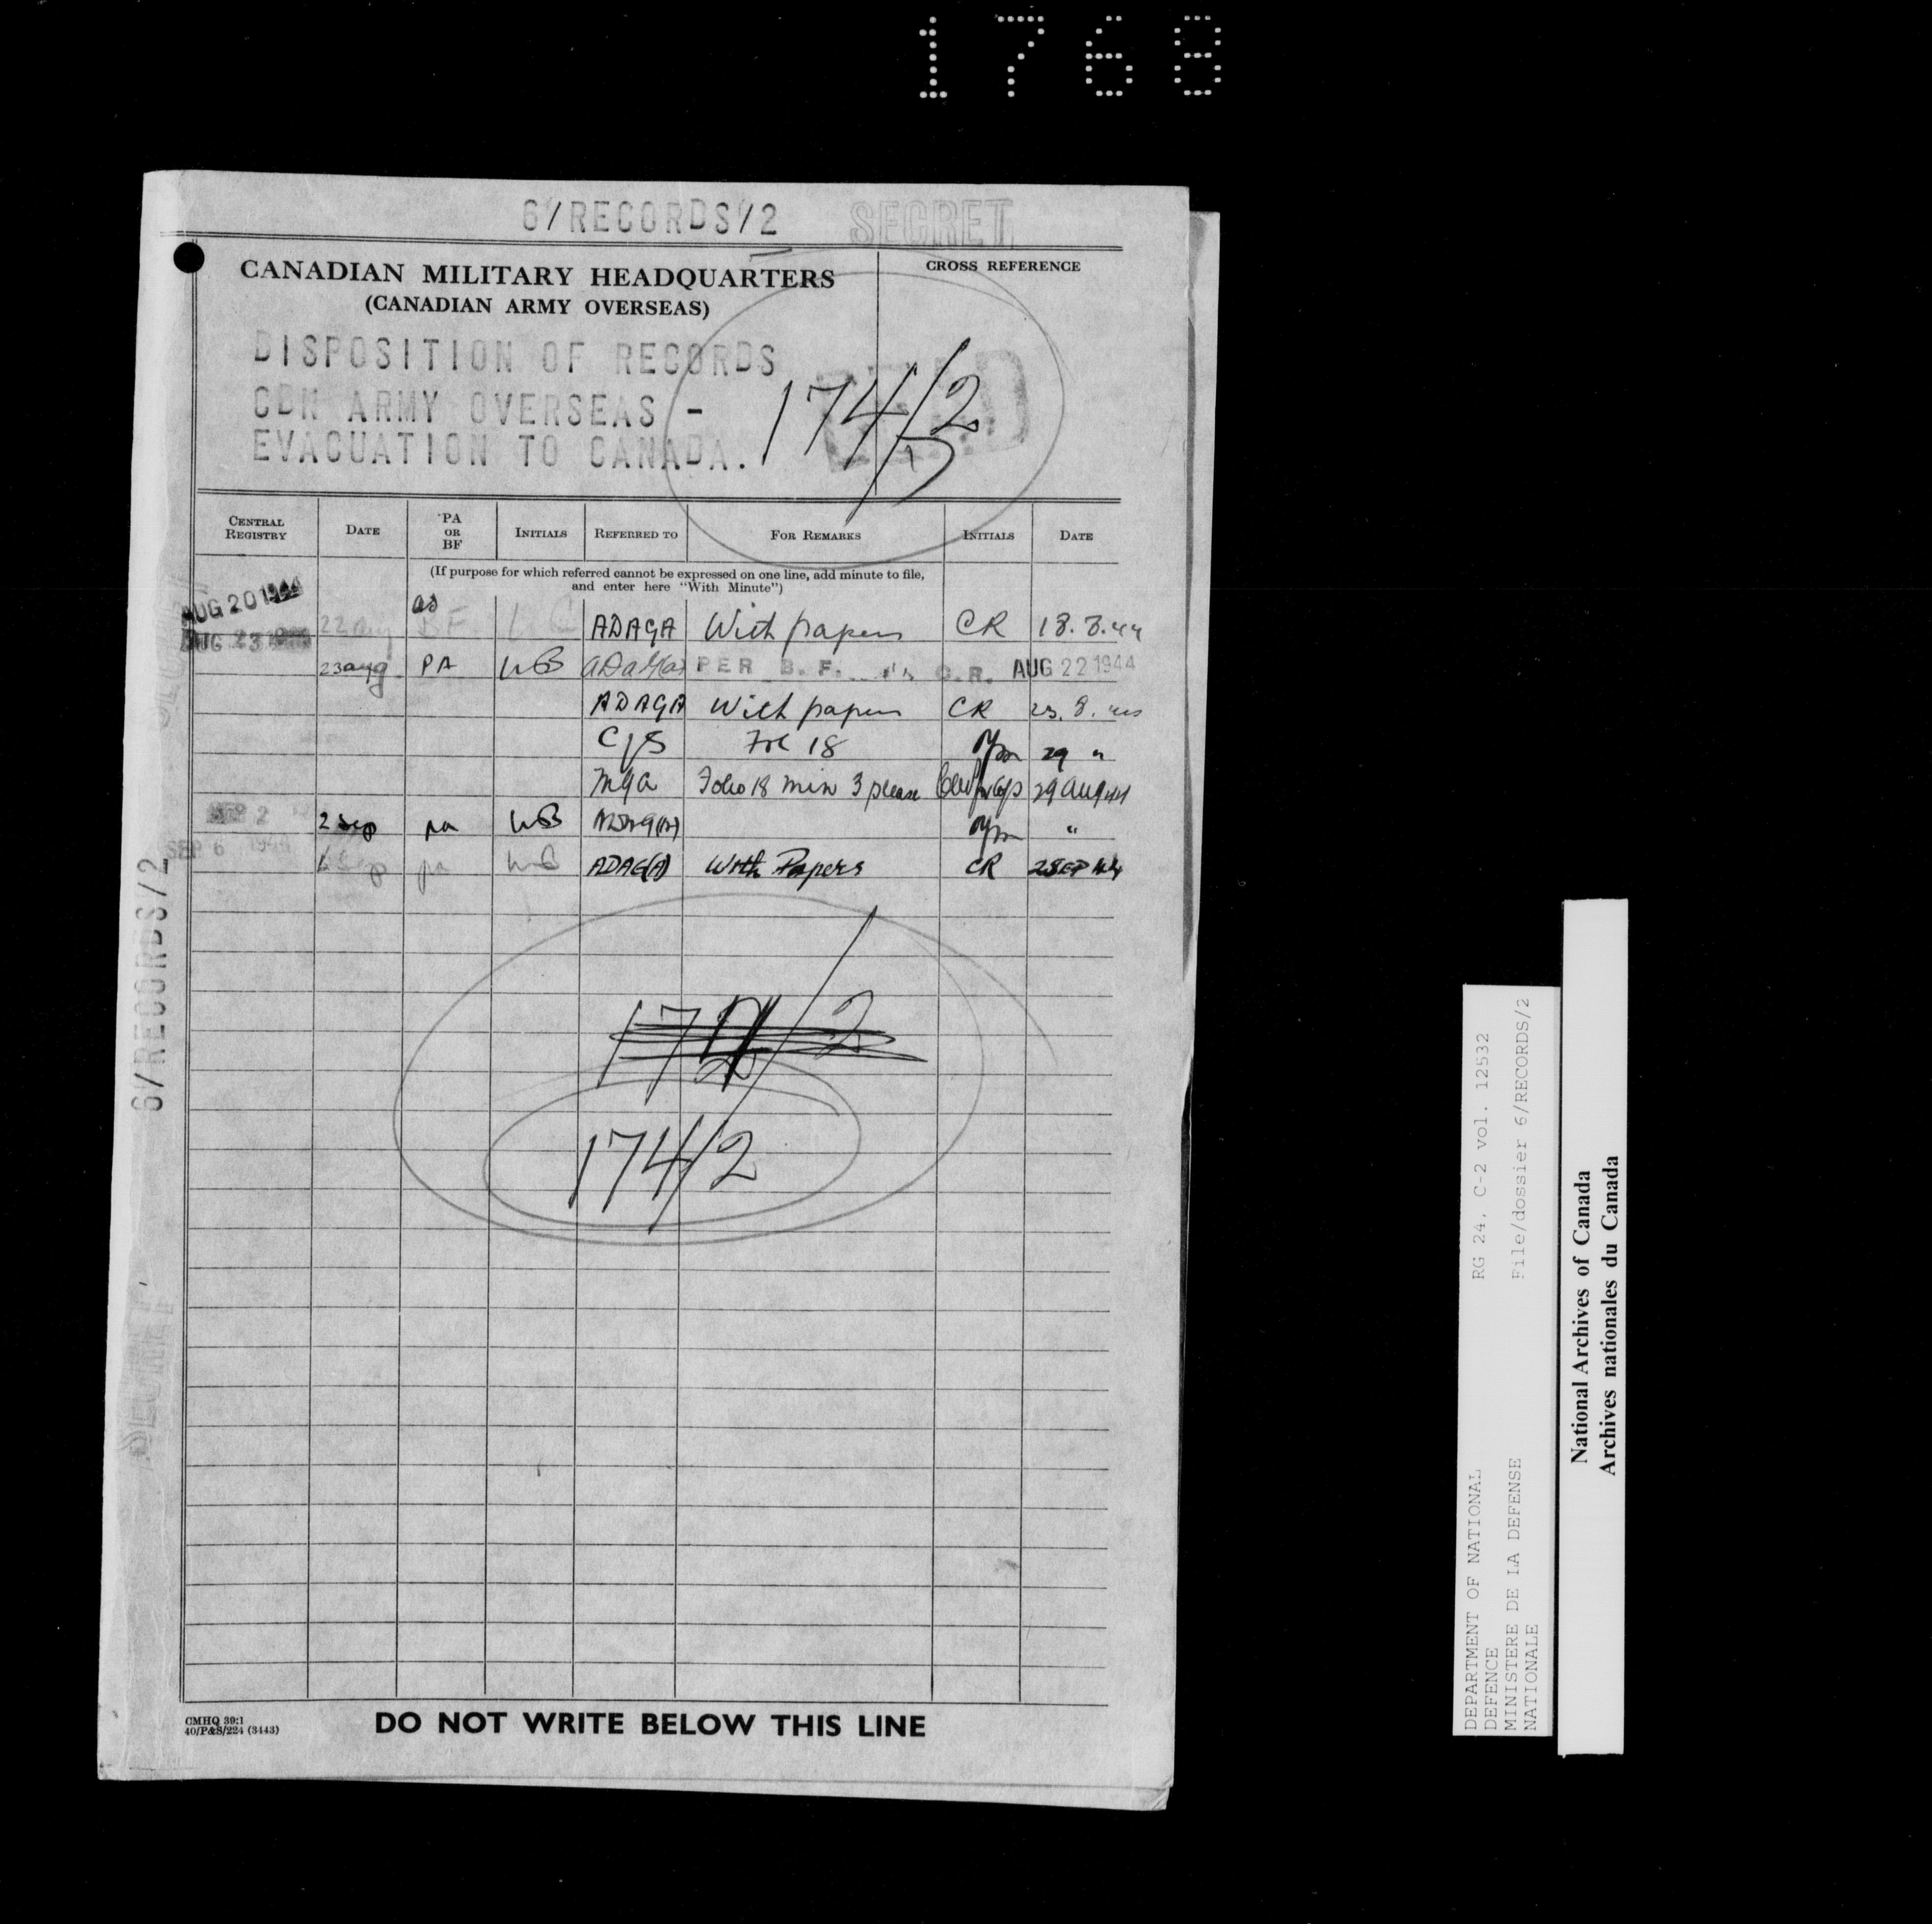 1768
6/RECORDS/2 SECRET
CANADIAN MILITARY HEADQUARTERS
(CANADIAN ARMY OVERSEAS)
CROSS REFERENCE
DISPOSITION OF RECORDS
CDN ARMY OVERSEAS -
EVACUATION TO CANADA.
174/2
CENTRAL REGISTRY DATE PA OR BF INITIALS REFERRED TO FOR REMARKS INITIALS DATE
(If purpose for which referred cannot be expressed on one line, add minute to file,
and enter here "With Minute")
AUG 20 1944 22 Aug BF ADAGA With papers CR 18.8.44
AUG 23 23 aug PA WB PER B.F. C.R. AUG 22 1944
ADAGA With papers CR 8.
Fol 18 29 "
MGA Folio 18 min 3 please 29 Aug 44
SEP 2 2 Sep pa WB "
SEP 6 1944 pa ADAG(A) With Papers CR 2 SEP 44
174/2
6/RECORDS/2
CMHQ 39:1
40/P&S/224 (3443)
DO NOT WRITE BELOW THIS LINE
DEPARTMENT OF NATIONAL
DEFENCE
MINISTERE DE LA DEFENSE
NATIONALE
RG 24, C-2 vol. 12532
File/dossier 6/RECORDS/2
National Archives of Canada
Archives nationales du Canada